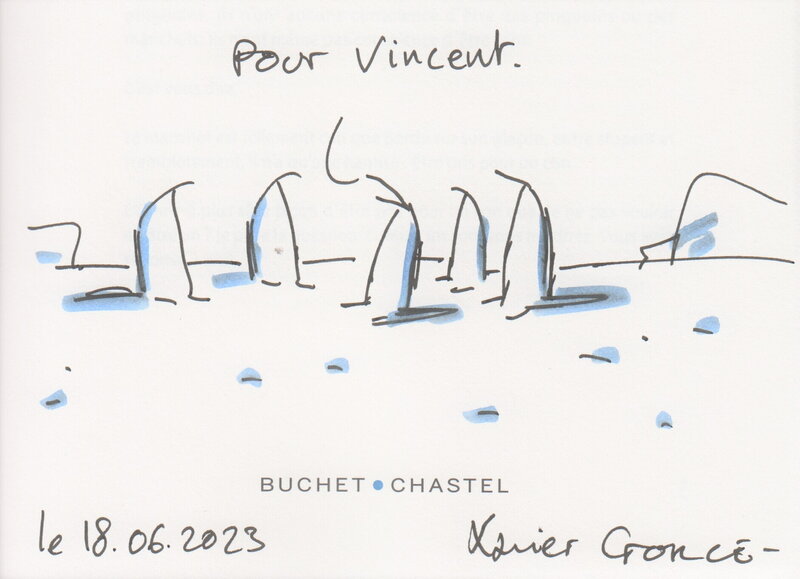 Pour Vincent.
BUCHET • CHASTEL
le 18.06.2023
Xavier GORCE-